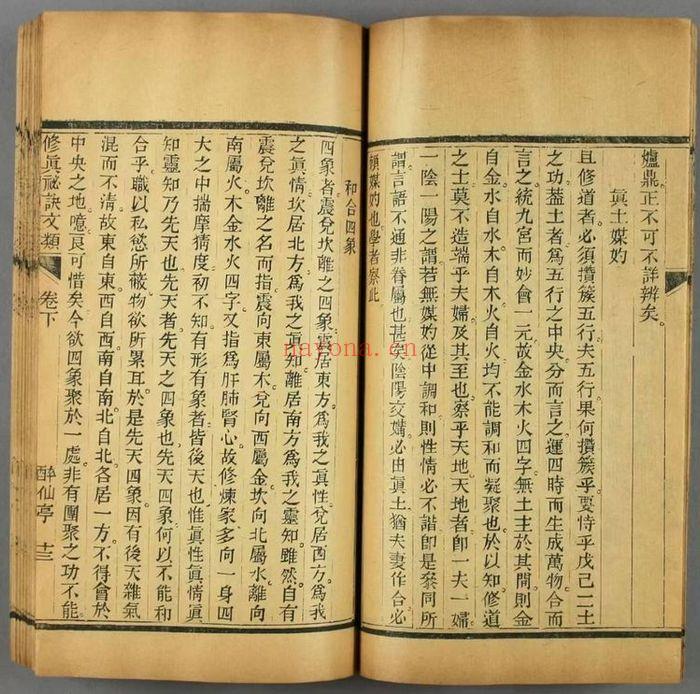 爐鼎正不可不詳辨矣
眞土媒妁
且修道者必須攢簇五行夫五行果何攢簇乎要恃乎戊己二土
之功蓋土者爲五行之中央分而言之運四時而生成萬物合而
言之統九宮而妙會一元故金水木火四字無土主於其間則金
自金水自水木自木火自火均不能調和而凝聚也於以知修道
之士莫不造端乎夫婦及其至也察乎天地天地者卽一夫一婦
一陰一陽之謂若無媒妁從中調和則性情必不諧卽是叅同所
謂言語不通非眷屬也甚矣陰陽交媾必由眞土猶夫妻作合必
賴媒妁也學者察此
和合四象
四象者震兌坎離之四象震居東方爲我之眞性兌居西方爲我
之眞情坎居北方爲我之眞知離居南方爲我之靈知雖然自有
震兌坎離之名而指震向東屬木兌向西屬金坎向北屬水離向
南屬火木金水火四字又指爲肝肺腎心故修煉家多向一身四
大之中揣摩猜度初不知有形有象者皆後天也惟眞性眞情眞
知靈知乃先天也先天者先天之四象也先天四象何以不能和
合乎職以私慾所蔽物欲所累耳於是先天四象因有後天雜氣
混而不淸故東自東西自西南自南北自北各居一方不得會於
中央之地噫良可惜矣今欲四象聚於一處非有團聚之功不能
修眞祕訣文類 卷下 醉仙亭 十三
nayona.cn